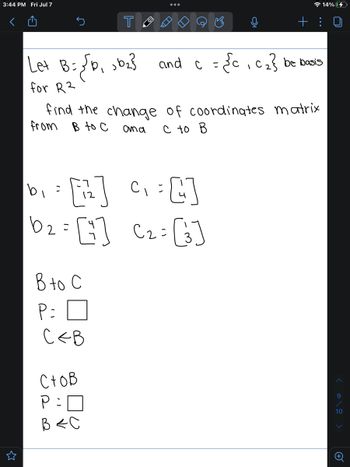 3:44 PM Fri Jul 7 14%
Let B={b1, b2} and c = {c1, c2} be basis
for R2
find the change of coordinates matrix
from B to C and C to B
b1 = [-7 12] C1 = [1 4]
b2 = [4 7] C2 = [1 3]
B to C
P = □
C ← B
C to B
P = □
B ← C
9
/
10